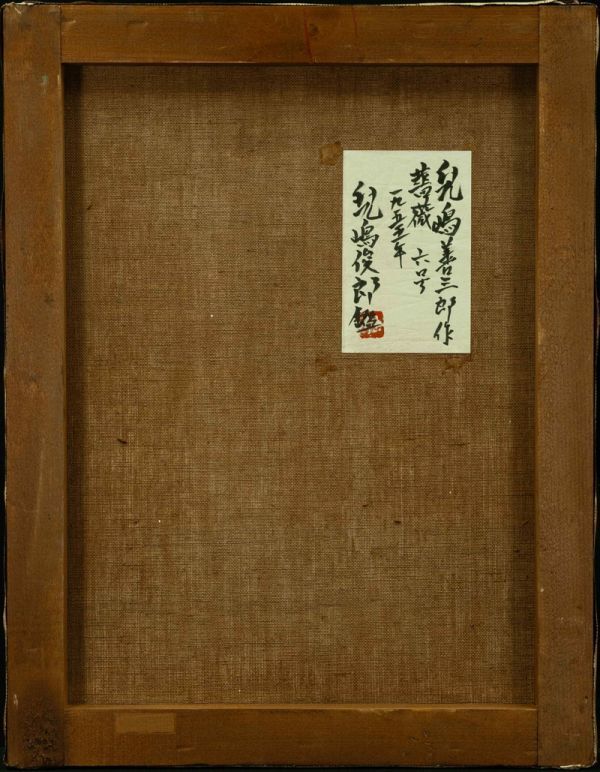 兒嶋善三郎作
薔薇 六号
一九五五年
兒嶋俊郎鑑